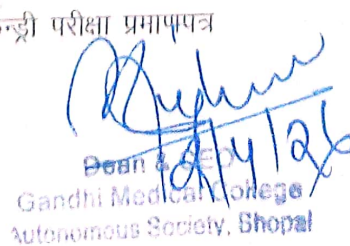 परीक्षा प्रमाणपत्र
12/4/26
Dean & CEO
Gandhi Medical College
Autonomous Society, Bhopal